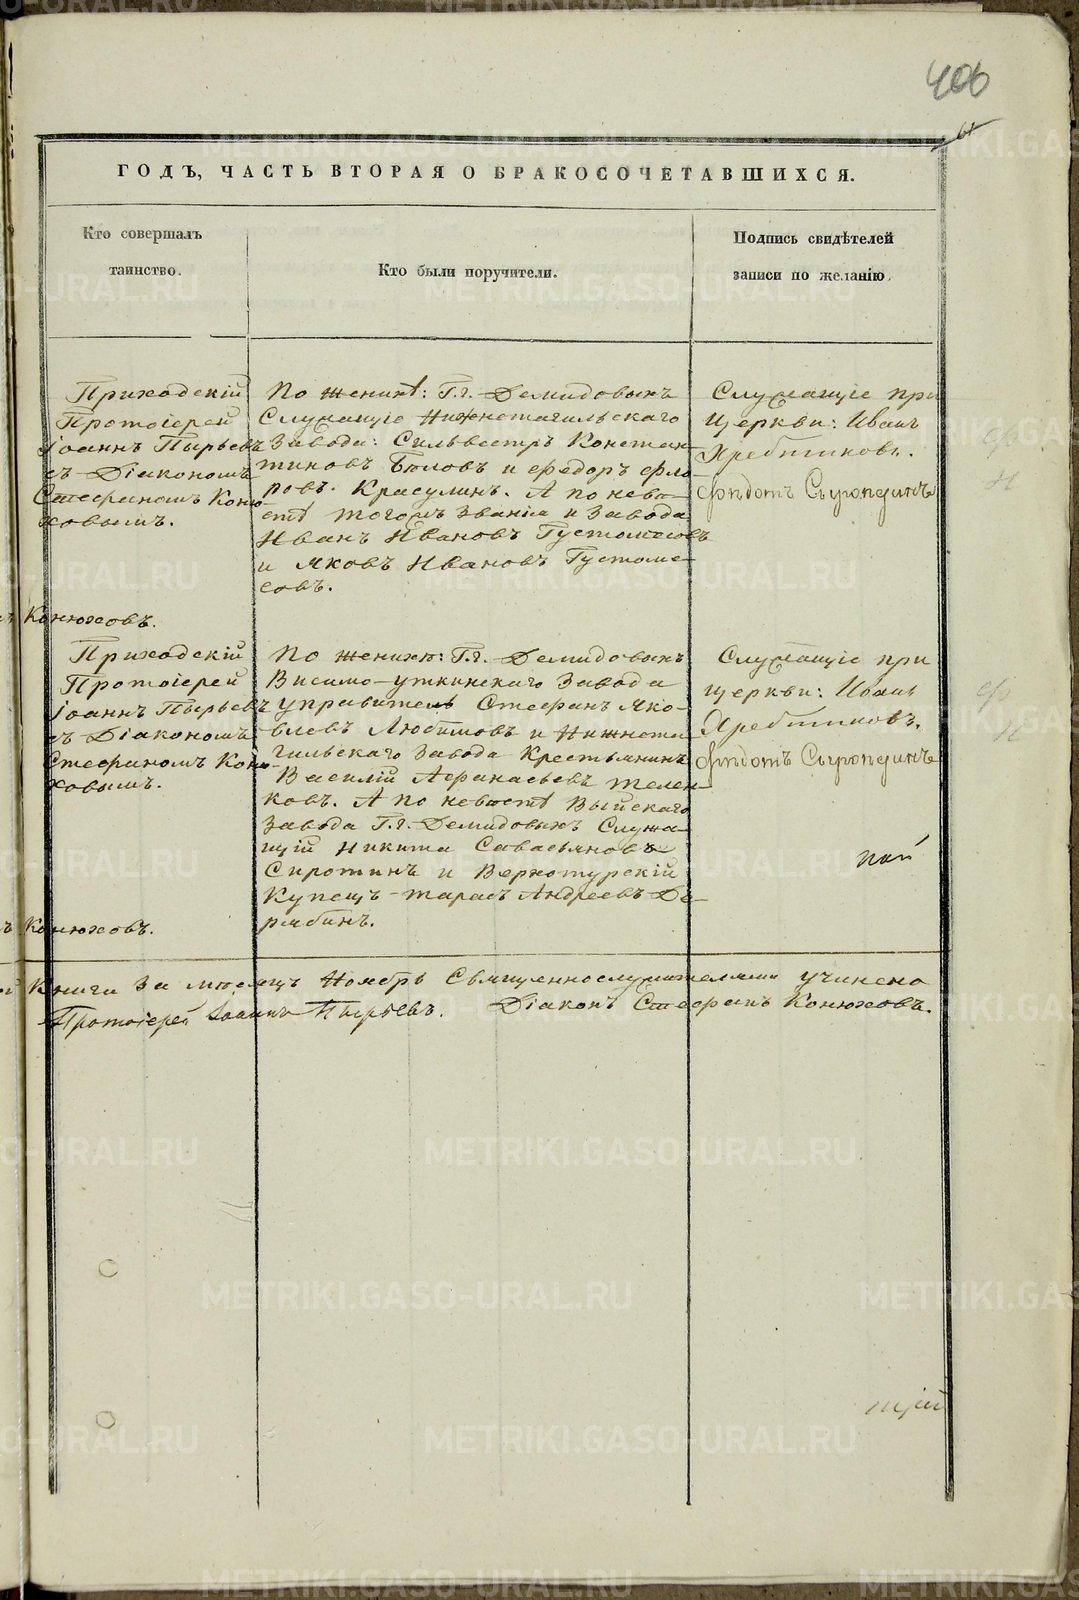 406
61
ГОДЪ, ЧАСТЬ ВТОРАЯ О БРАКОСОЧЕТАВШИХСЯ.
Кто совершалъ
таинство.
Кто были поручители.
Подпись свидѣтелей
записи по желанію.
Приходскій
Протоіерей
Іоаннъ Пырьевъ
съ Діакономъ
Стефаномъ Коню-
ховымъ.
По женихѣ: Г.г. Демидовыхъ
Служащіе Нижнетагильскаго
Завода: Сильвестръ Констан
тиновъ Бѣловъ и Федоръ Фло
ровъ. Красулинъ. А по невѣ-
стѣ того жъ Званія и Завода
Иванъ Ивановъ Густомесовъ
и Яковъ Ивановъ Густоме-
совъ.
Служащіе при
Церкви: Иванъ
Хребтиковъ.
Конюховъ.
Приходскій
Протоіерей
Іоаннъ Пырьевъ
съ Діакономъ
Стефаномъ Коню-
ховымъ.
По женихѣ: Г.г. Демидовыхъ
Висимо-уткинскаго Завода
Управитель Стефанъ Яко-
влевъ Любимовъ и Нижнета-
гильскаго Завода Крестьянинъ
Василій Афанасьевъ Телен-
ковъ. А по невѣстѣ Выйскаго
Завода Г.г. Демидовыхъ Служа-
щій Никита Савасьяновъ
Сиротинъ и Верхотурскій
Купецъ Тарасъ Андреевъ Де-
рябинъ.
Служащіе при
Церкви: Иванъ
Хребтиковъ.
Конюховъ.
Книги За мѣсяцъ Ноябрь Священнослужителями учинено
Протоіерей Іоаннъ Пырьевъ. Діаконъ Стефанъ Конюховъ.
щій
METRIKI.GASO-URAL.RU